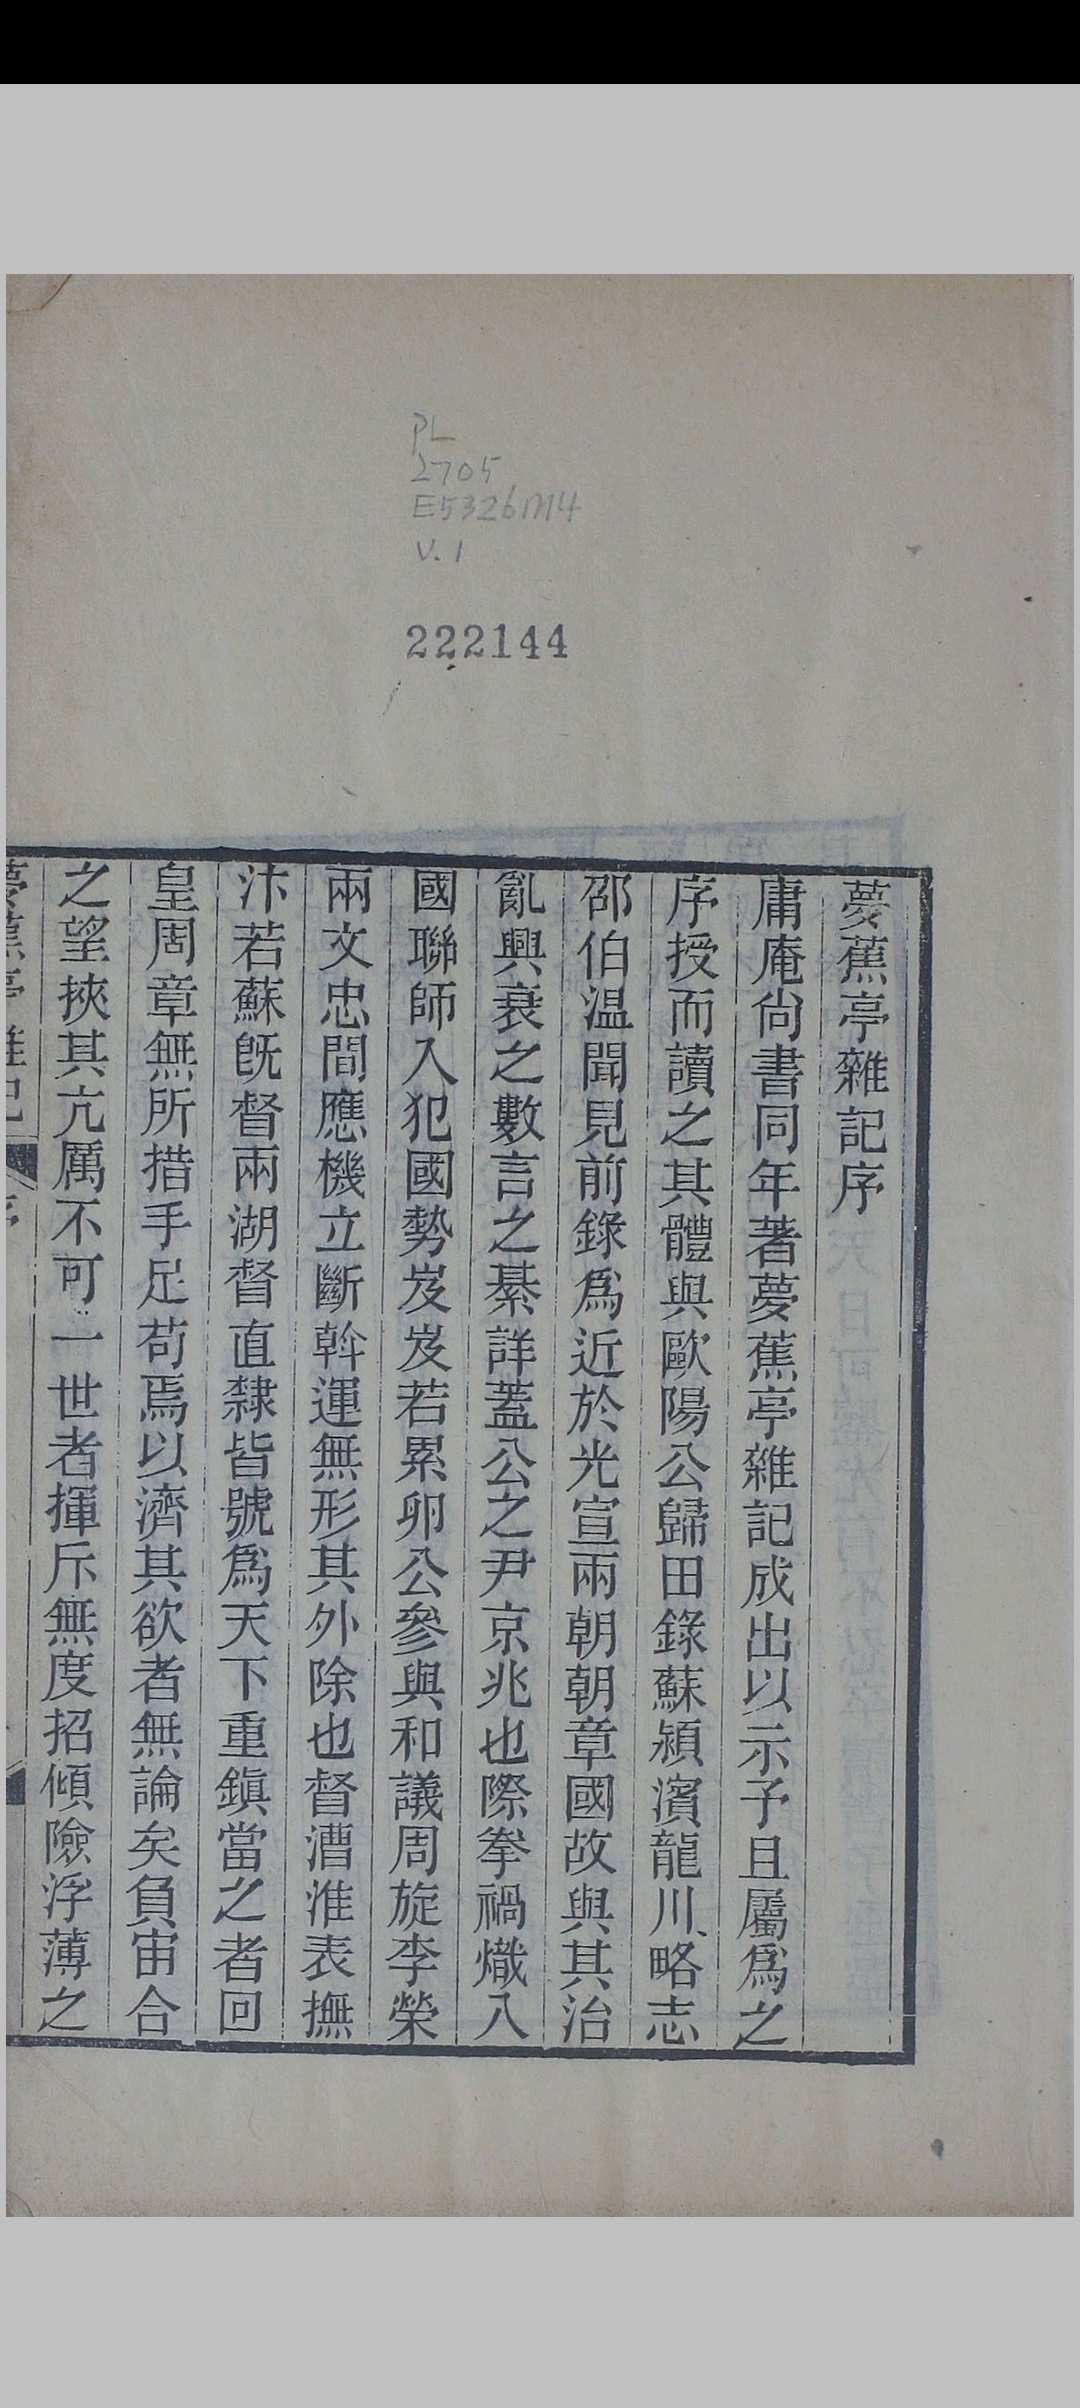 PL
2705
E5326M4
V.1
222144
夢蕉亭雜記序
庸庵尙書同年著夢蕉亭雜記成出以示予且屬爲之
序授而讀之其體與歐陽公歸田錄蘇潁濱龍川略志
邵伯温聞見前錄爲近於光宣兩朝朝章國故與其治
亂興衰之數言之綦詳蓋公之尹京兆也際拳禍熾八
國聯師入犯國勢岌岌若累卵公參與和議周旋李榮
兩文忠間應機立斷斡運無形其外除也督漕淮表撫
汴若蘇旣督兩湖督直隸皆號爲天下重鎭當之者回
皇周章無所措手足苟焉以濟其欲者無論矣負宙合
之望挾其亢厲不可一世者揮斥無度招傾險浮薄之
夢蕉亭雜記 序